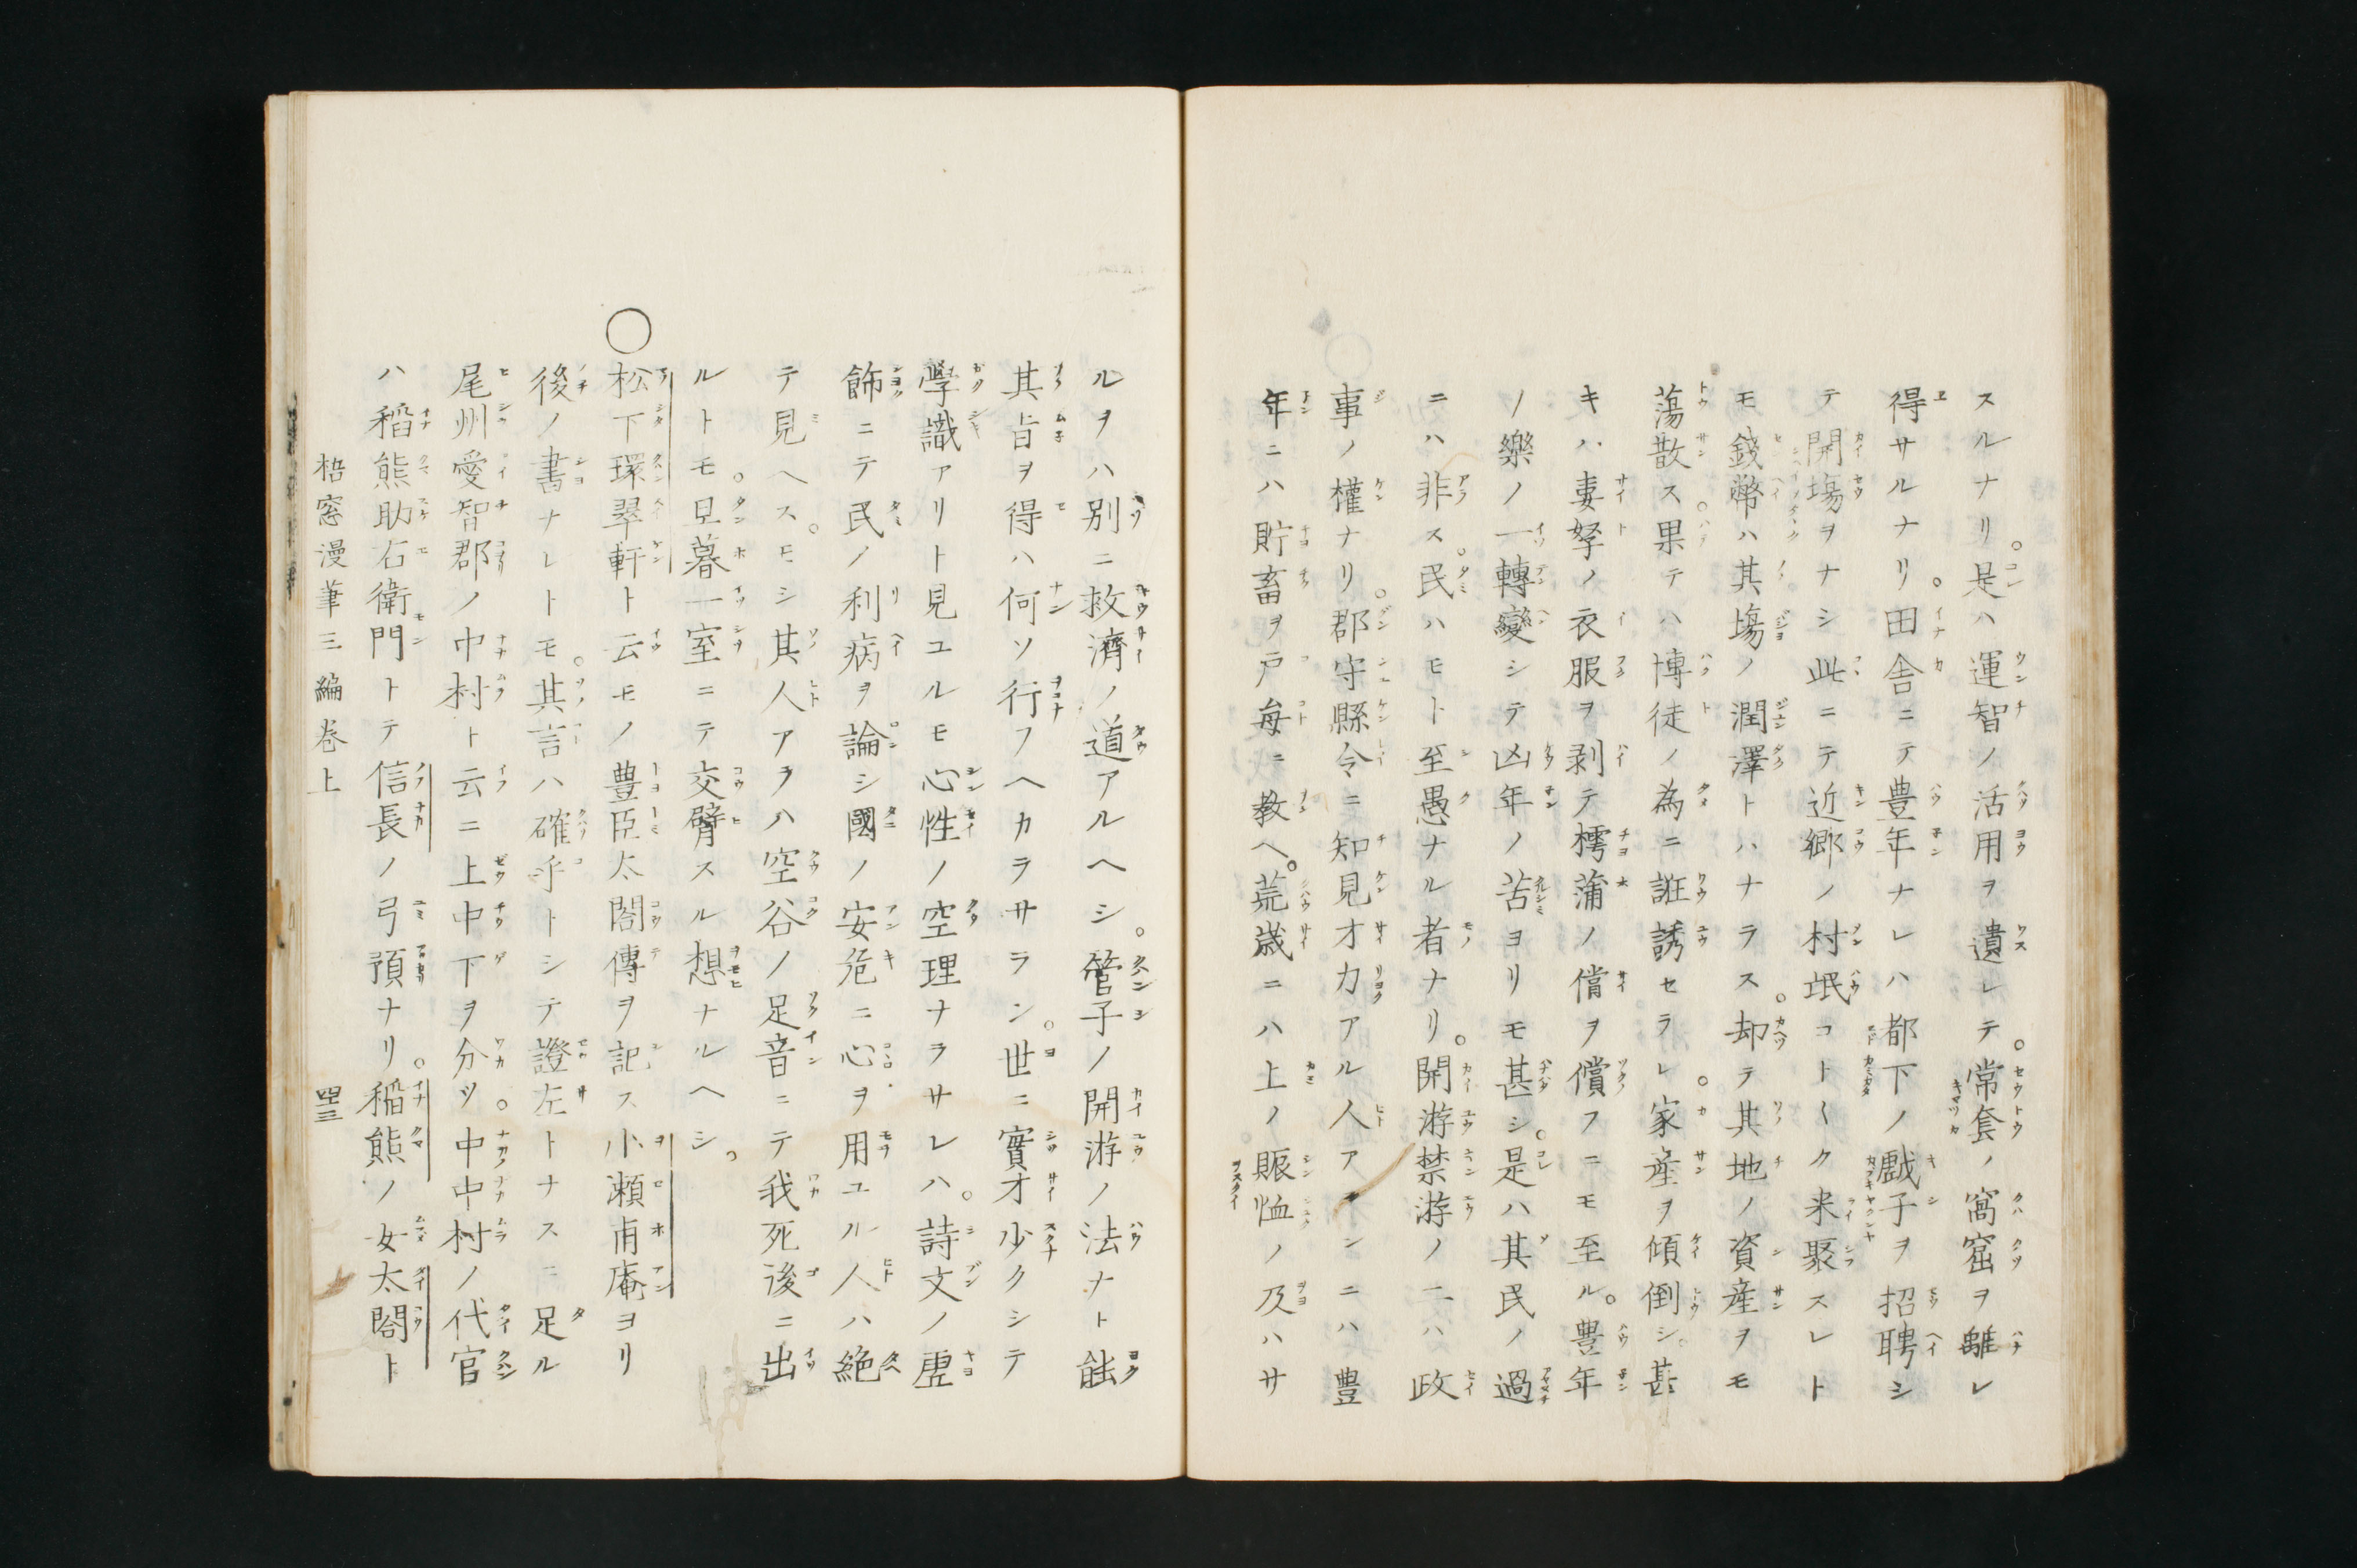 スルナリ。是ハ運智ノ活用ヲ遺レテ。常套ノ窩窟ヲ離レ
得サルナリ。田舎ニテ豊年ナレハ都下ノ戯子ヲ招聘シ
テ開塲ヲナシ此ニテ近郷ノ村氓コト〱ク来聚スレト
モ錢幣ハ其塲ノ潤澤トハナラス。却テ其地ノ資産ヲモ
蕩散ス。果テハ博徒ノ為ニ誑誘セラレ。家産ヲ傾倒シ。甚
キハ妻孥ノ衣服ヲ剥テ樗蒲ノ償ヲ償フニモ至ル。豊年
ノ樂ノ一轉變シテ凶年ノ苦ヨリモ甚シ。是ハ其民ノ過
ニハ非ス。民ハモト至愚ナル者ナリ。開游禁游ノ二ハ政
事ノ權ナリ。郡守縣令ニ知見才力アル人アランニハ豊
年ニハ貯畜ヲ戸毎ニ教ヘ。荒歳ニハ上ノ賑恤ノ及ハサ
ルヲハ別ニ救濟ノ道アルヘシ。管子ノ開游ノ法ナト能
其旨ヲ得ハ何ソ行フヘカラサラン。世ニ實才少クシテ
學識アリト見ユルモ心性ノ空理ナラサレハ。詩文ノ虚
飾ニテ民ノ利病ヲ論シ國ノ安危ニ心ヲ用ユル人ハ絶
テ見ヘス。モシ其人アラハ空谷ノ足音ニテ我死後ニ出
ルトモ。旦暮一室ニテ交臂スル想ナルヘシ。
○松下環翠軒ト云モノ豊臣太閤傳ヲ記ス小瀬甫庵ヨリ
後ノ書ナレトモ。其言ハ確乎トシテ證左トナスニ足ル
尾州愛智郡ノ中村ト云ニ上中下ヲ分ツ。中中村ノ代官
ハ稲熊助右衛門トテ信長ノ弓預ナリ。稲熊ノ女太閤ト
梧窓漫筆三編巻上
四十三